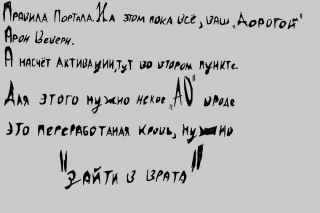 Правила Портала. На этом пока всё, ваш "Дорогой"
Арон Веверн.
А насчёт активации, тут во втором пункте.
Для этого нужно некое "АО" вроде
это переработаная кровь, нужно
"Зайти в врата"